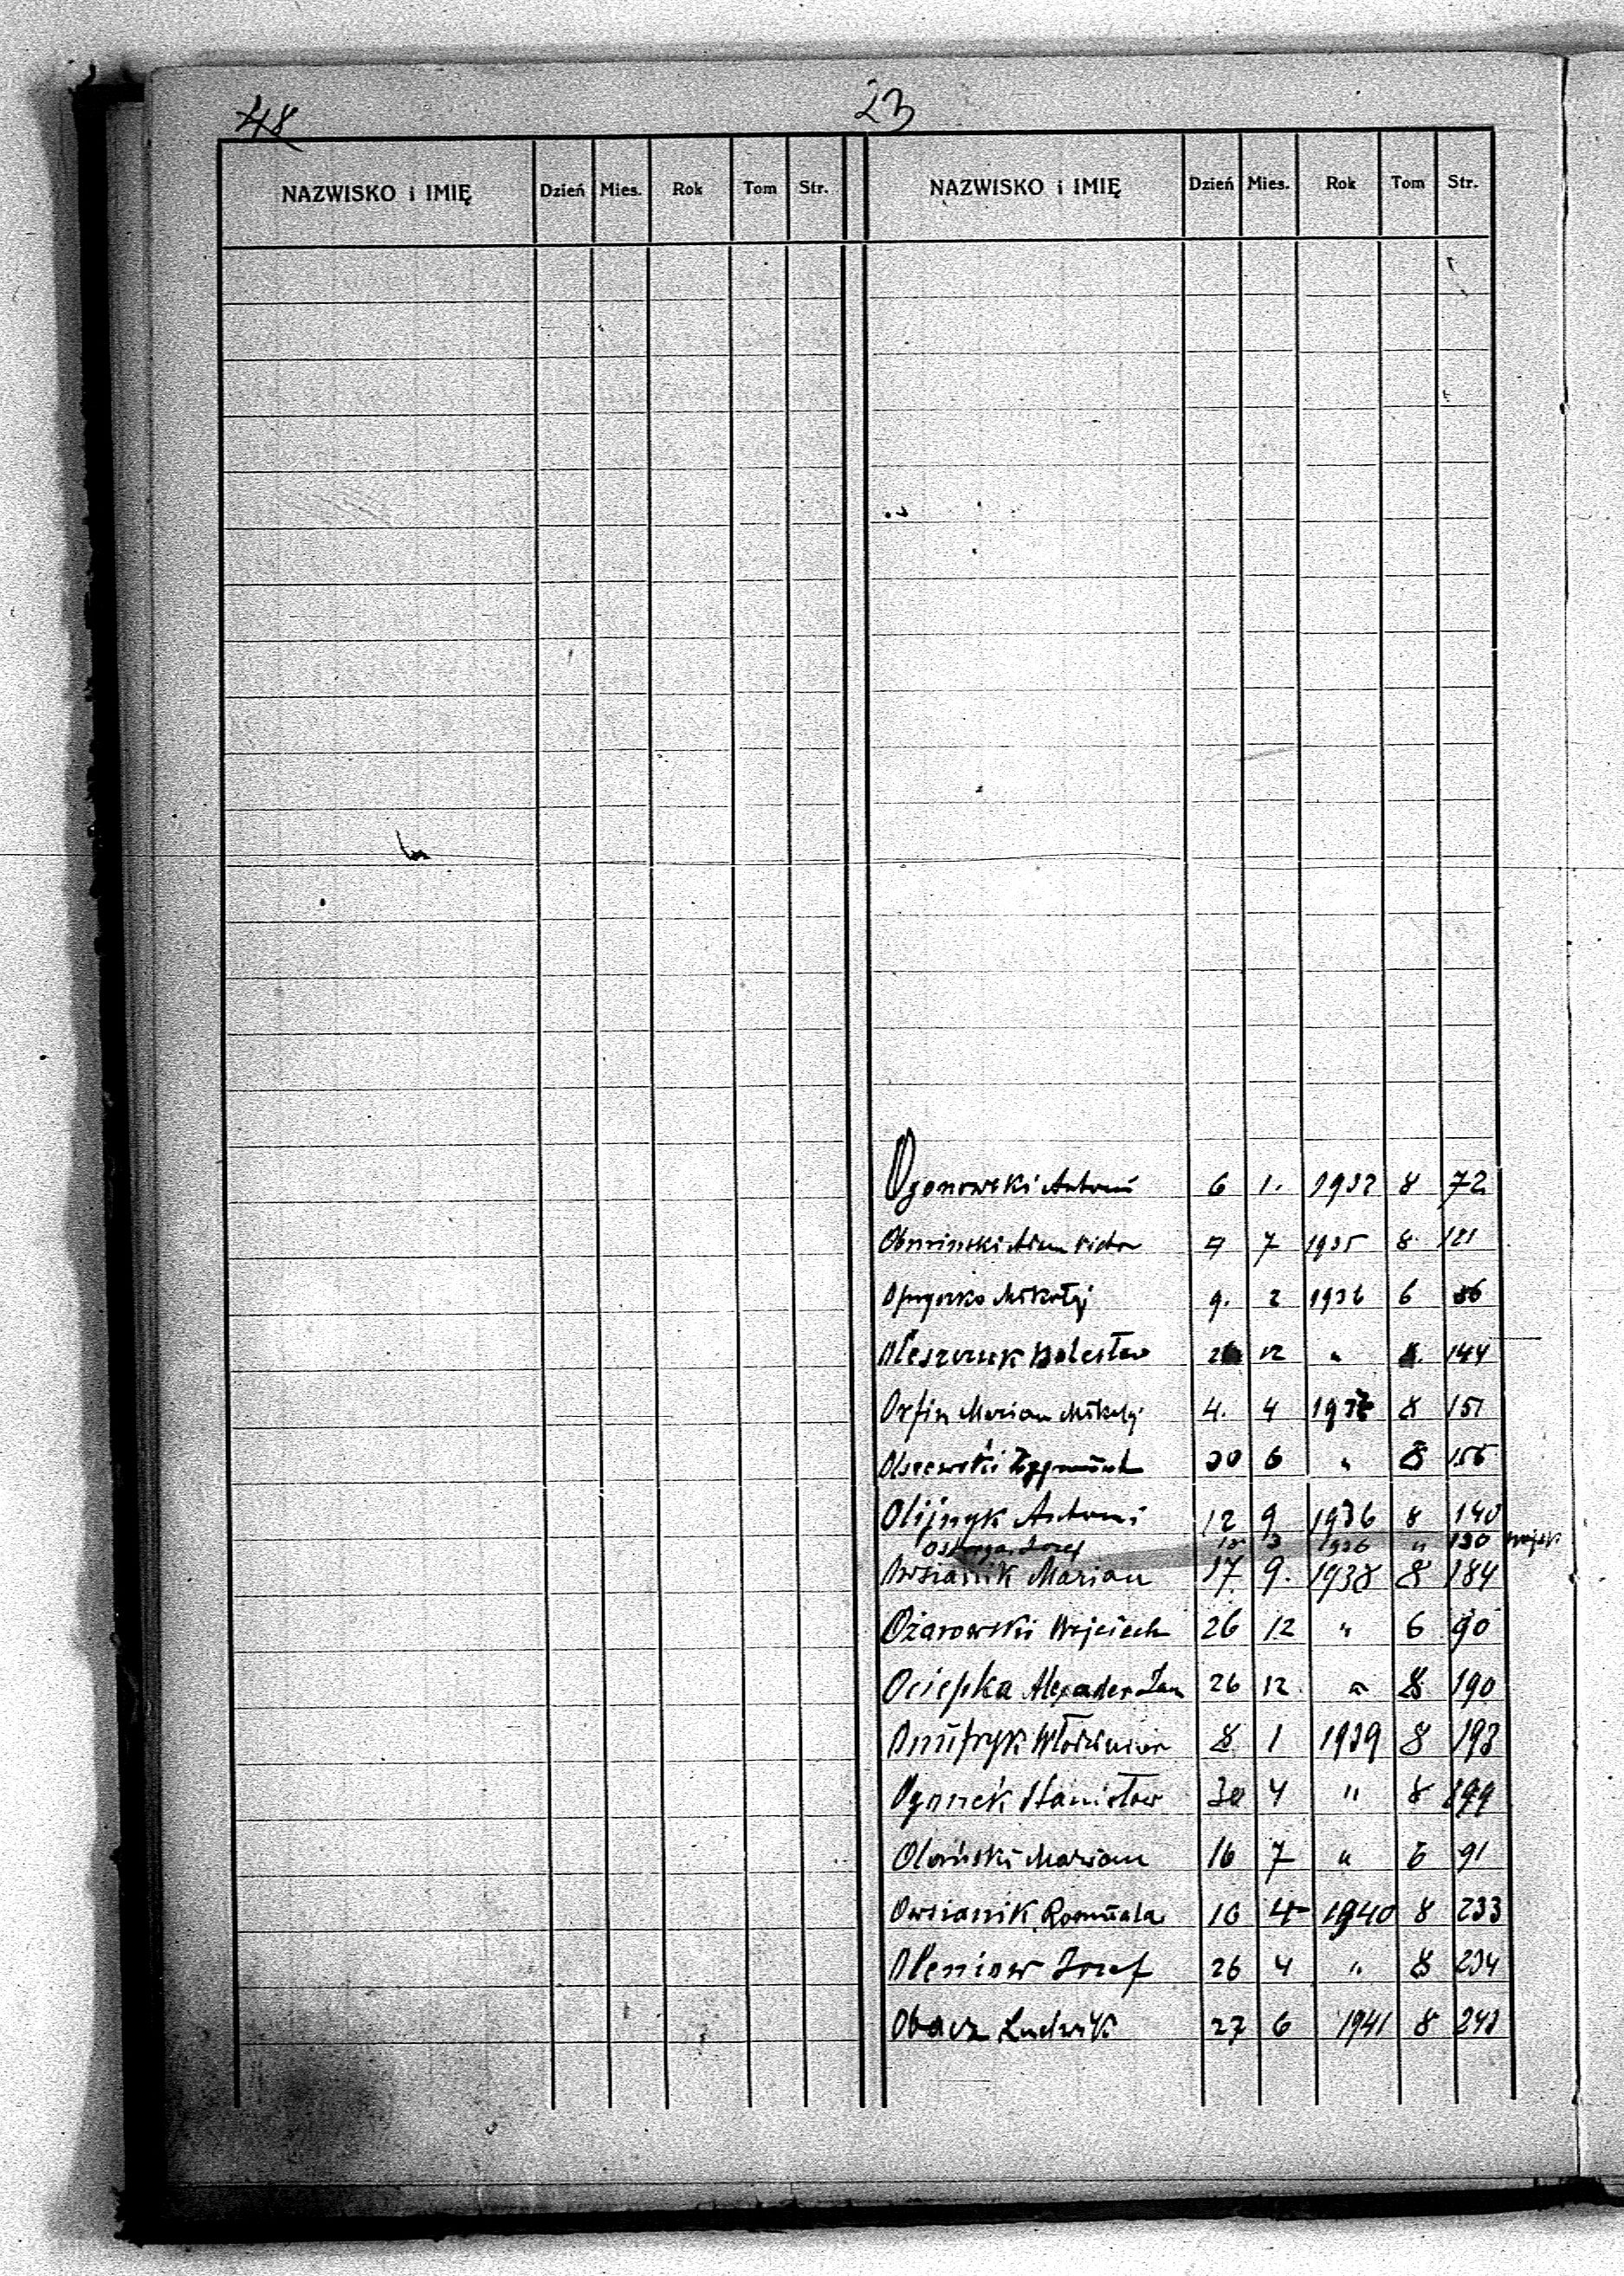 48
23
NAZWISKO i IMIĘ Dzień Mies. Rok Tom Str. NAZWISKO i IMIĘ Dzień Mies. Rok Tom Str.
Ogonowski Antoni 6 1. 1932 8 72
7 1935 8. 121
Mikołaj 9. 2 1936 6
Oleszczuk Bolesław 12 " 8. 144
Orfin Marian Mikołaj 4. 4 1937 8 151
Olszewski Zygmunt 30 6 " 8 156
Olijnyk Antoni 12 9 1936 8 140
Józef 1936 " 130
Owsianik Marian 17 9. 1938 8 184
Ożarowski Wojciech 26 12 " 6 90
Ociepka Alexander Jan 26 12 " 8 190
Onufryk Włodzimier 8 1 1939 8 193
Ogonek Stanisław 30 4 " 8 199
Marian 16 7 " 6 91
Owsianik Romualda 16 4 1940 8 233
Oleniow Józef 26 4 " 8 234
Obacz Ludwik 27 6 1941 8